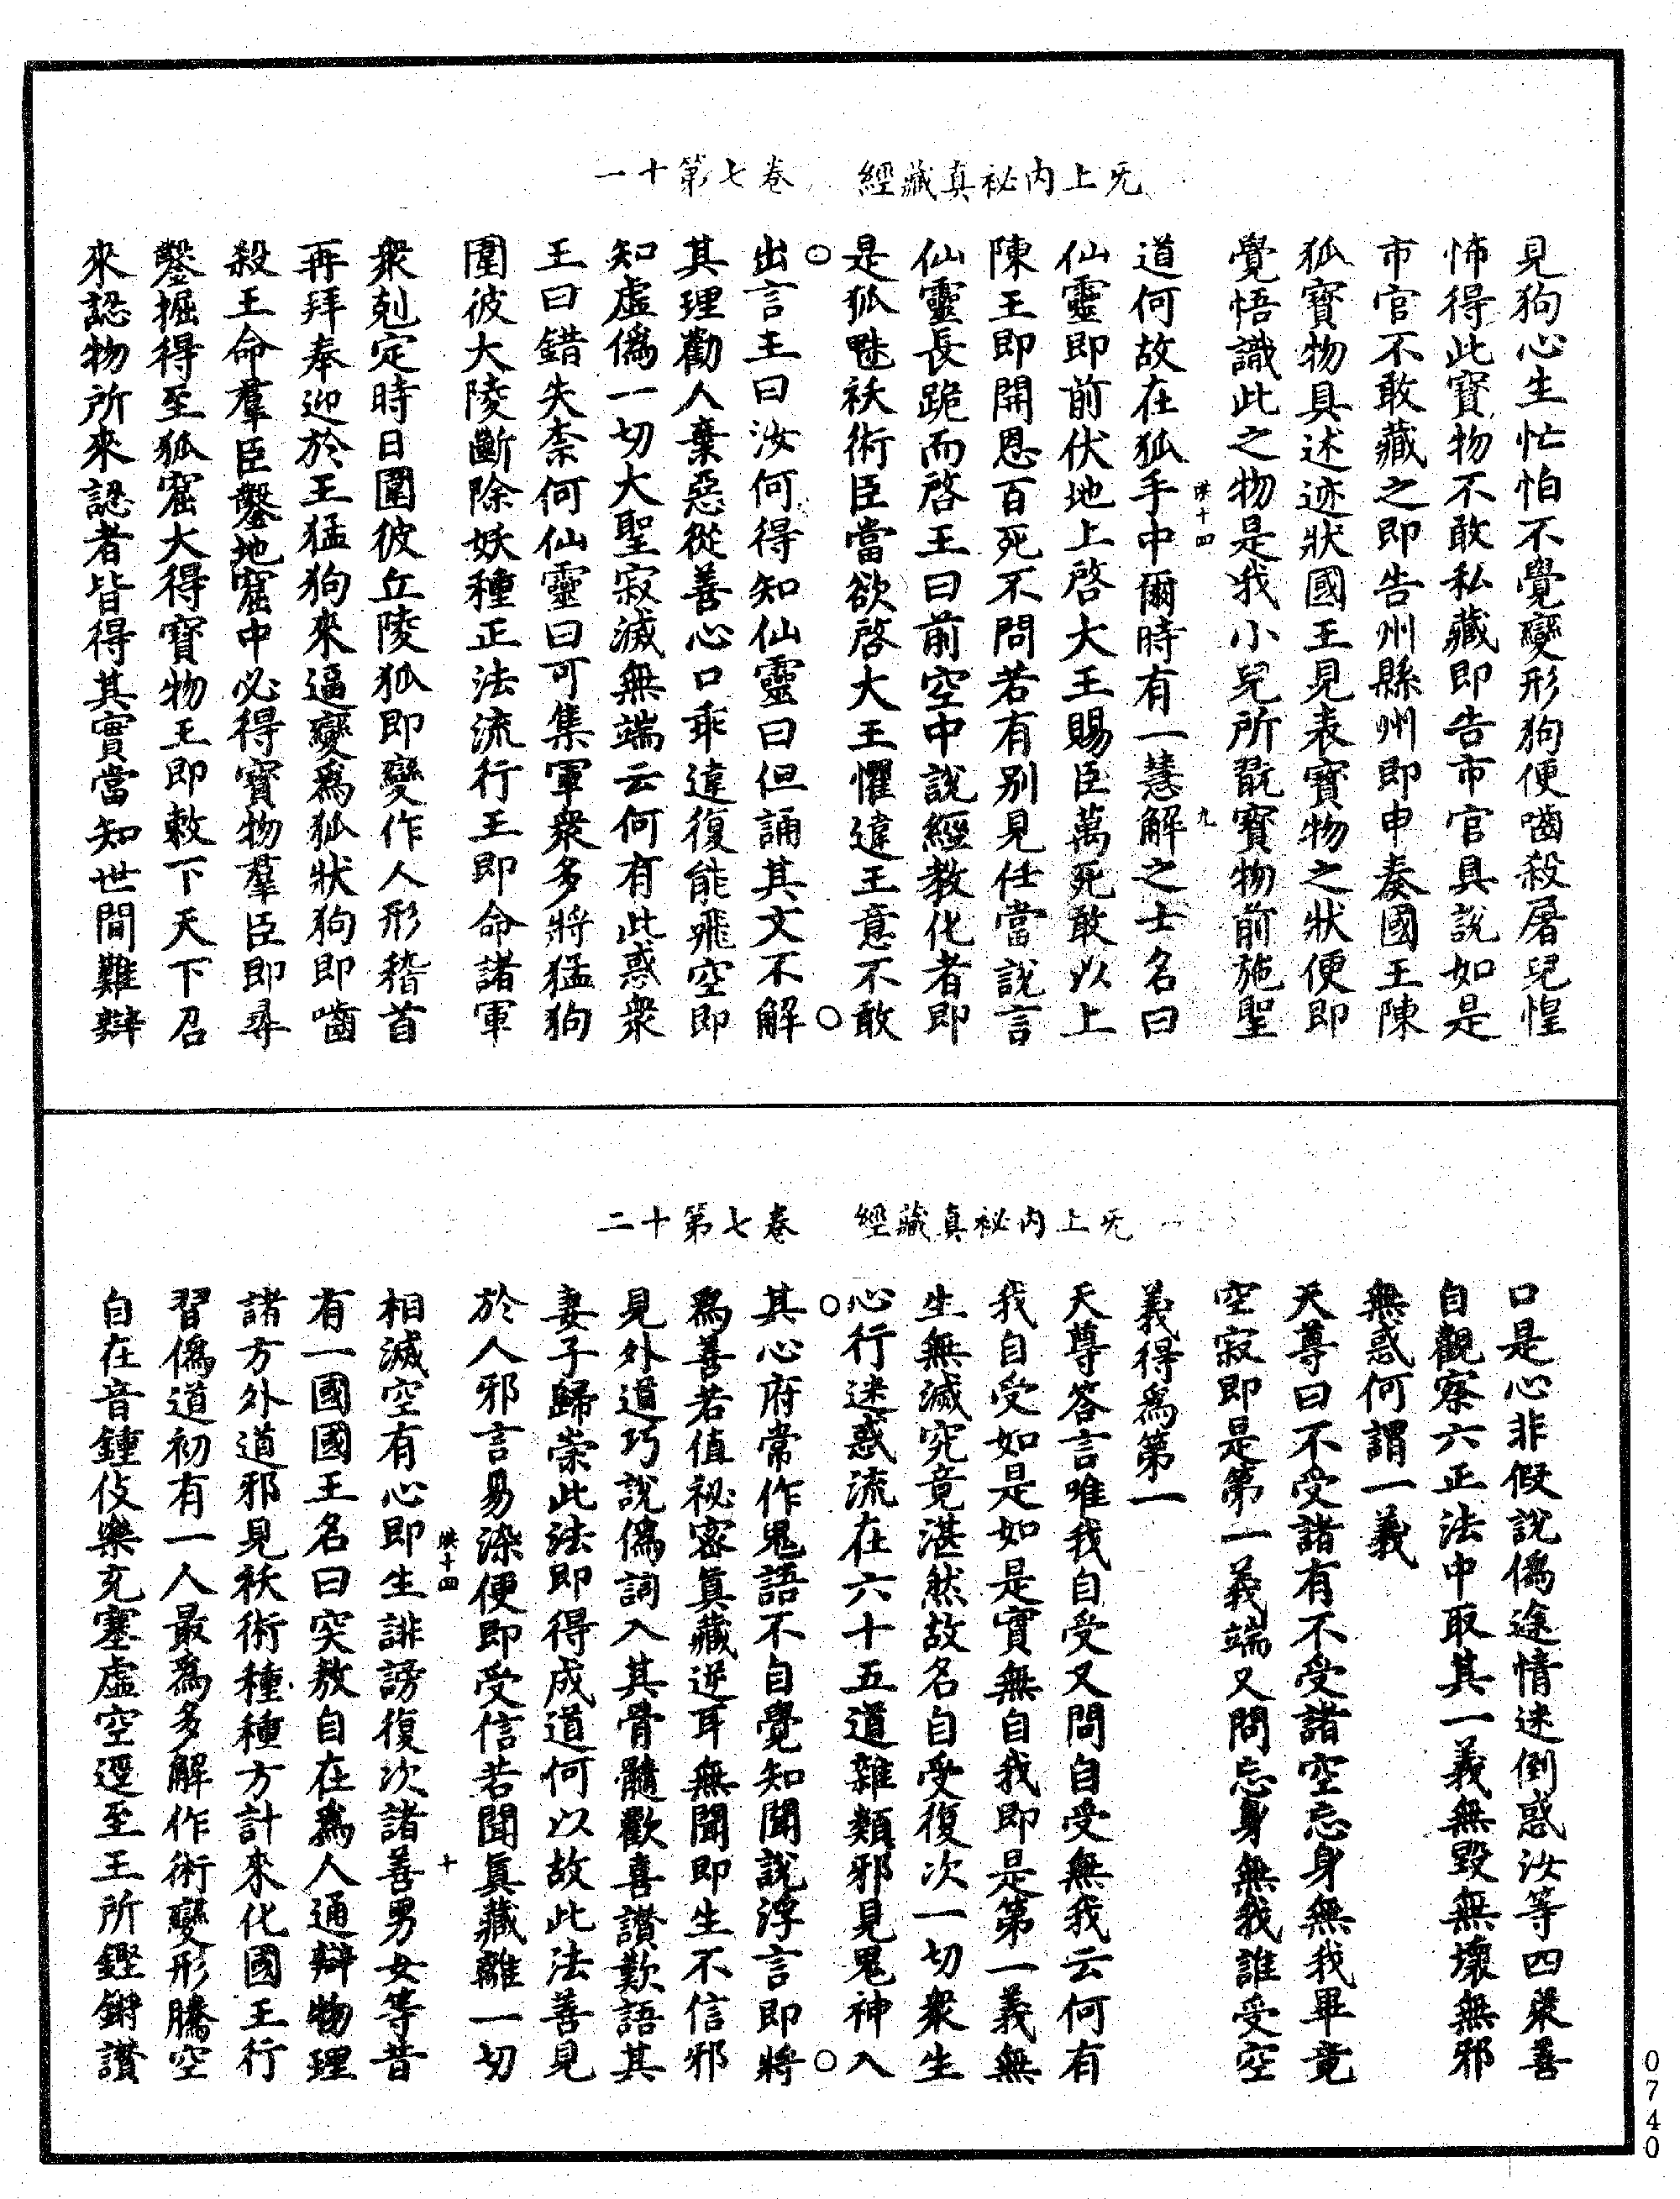 无上内秘真藏經 卷七第十一
見狗心生忙怕不覺變形狗便嚙殺屠兒惶
怖得此寶物不敢私藏即告市官具說如是
市官不敢藏之即告州縣州即申奏國王陳
狐寶物具述迹狀國王見表寶物之狀便即
覺悟識此之物是我小兒所翫寶物前施聖
陕十四 九
道何故在狐手中爾時有一慧解之士名曰
仙靈即前伏地上啓大王賜臣萬死敢以上
陳王即開恩百死不問若有别見任當說言
仙靈長跪而啓王曰前空中說經教化者即
是狐魅袄術臣當欲啓大王懼違王意不敢
出言王曰汝何得知仙靈曰但誦其文不解
其理勸人棄惡從善心口乖違復能飛空即
知虛僞一切大聖寂滅無端云何有此惑衆
王曰錯失柰何仙靈曰可集軍衆多將猛狗
圍彼大陵斷除妖種正法流行王即命諸軍
衆剋定時日圍彼丘陵狐即變作人形稽首
再拜奉迎於王猛狗來逼變爲狐狀狗即嚙
殺王命羣臣鑿地窟中必得寶物羣臣即尋
鑿掘得至狐窟大得寶物王即敕下天下召
來認物所來認者皆得其實當知世間難辯
无上内秘真藏經 卷七第十二
口是心非假說僞途情迷倒惑汝等四衆善
自觀察六正法中取其一義無毀無壞無邪
無惑何謂一義
天尊曰不受諸有不受諸空忘身無我畢竟
空寂即是第一義端又問忘身無我誰受空
義得爲第一
天尊答言唯我自受又問自受無我云何有
我自受如是如是實無自我即是第一義無
生無滅究竟湛然故名自受復次一切衆生
心行迷惑流在六十五道雜類邪見鬼神入
其心府常作鬼語不自覺知聞說浮言即將
爲善若值祕密眞藏逆耳無聞即生不信邪
見外道巧說僞詞入其骨髓歡喜讚歎語其
妻子歸崇此法即得成道何以故此法善見
於人邪言易染便即受信若聞眞藏離一切
陕十四 十
相滅空有心即生誹謗復次諸善男女等昔
有一國國王名曰突敖自在爲人通辯物理
諸方外道邪見袄術種種方計來化國王行
習僞道初有一人最爲多解作術變形騰空
自在音鍾伎樂充塞虛空逕至王所鏗鏘讚
0740